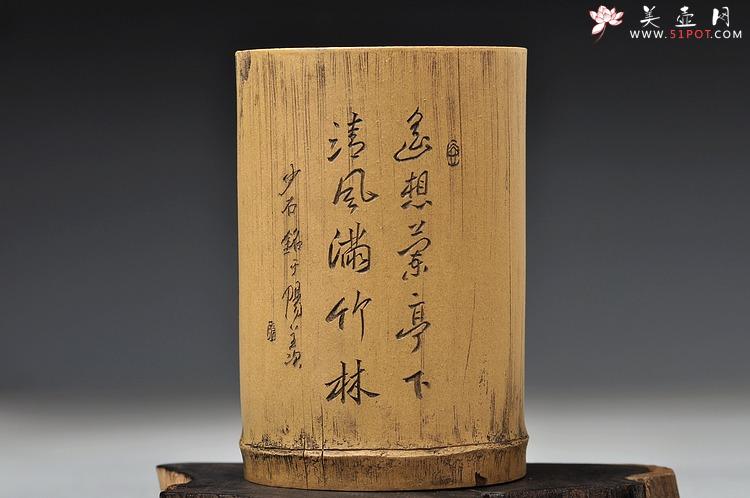 美壶网
WWW.51POT.COM
遙想蘭亭下
清風滿竹林
少石銘于陽羡